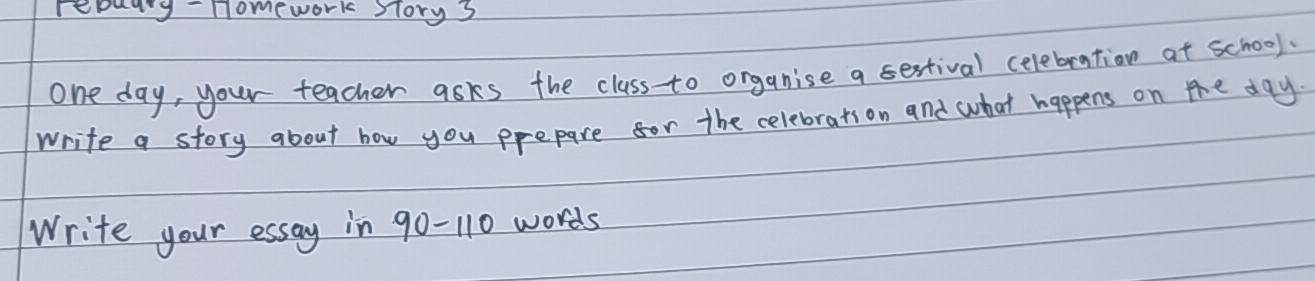 Febuary - Homework Story 3
One day, your teacher asks the class to organise a festival celebration at school.
Write a story about how you prepare for the celebration and what happens on the day.
Write your essay in 90-110 words